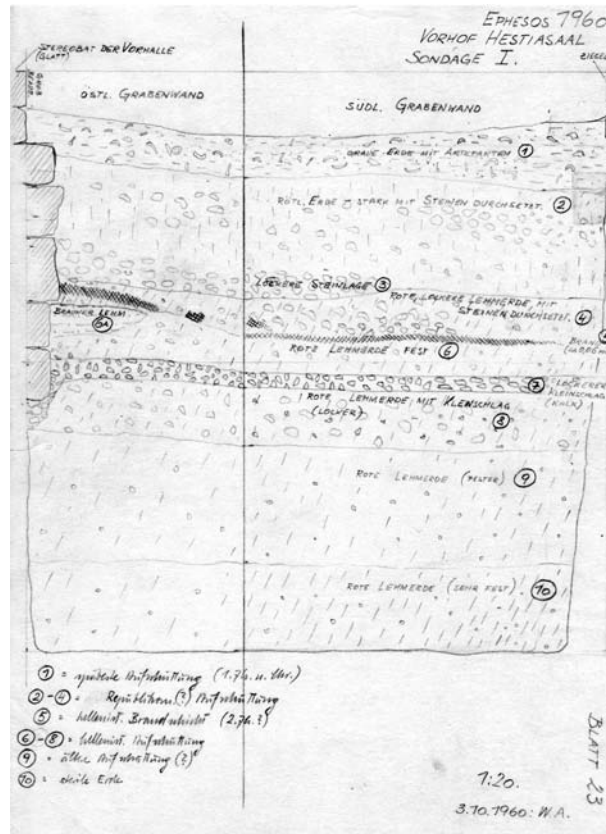 EPHESOS 1960
VORHOF HESTIASAAL
SONDAGE I.
STEREOBAT DER VORHALLE
(GLATT)
ZIEGEL
ÖSTL. GRABENWAND
SÜDL. GRABENWAND
GRAUE ERDE MIT ARTEFAKTEN ①
RÖTL. ERDE STARK MIT STEINEN DURCHSETZT. ②
LOCKERE STEINLAGE ③
ROTE, LOCKERE LEHMERDE, MIT
STEINEN DURCHSETZT. ④
BRAUNER LEHM
ROTE LEHMERDE FEST ⑥
⑦ LOCKERER
KLEINSCHLAG
(KALK)
ROTE LEHMERDE MIT KLEINSCHLAG
(LOCKER) ⑧
ROTE LEHMERDE (FESTER) ⑨
ROTE LEHMERDE (SEHR FEST) ⑩
① = späteste Aufschüttung (1.Jh. n. Chr.)
②-④ = Republikan.(?) Aufschüttung
⑤ = hellenist. Brandschicht (2.Jh.?)
⑥-⑧ = hellenist. Aufschüttung
⑨ = ältere Aufschüttung (?)
⑩ = Erde
1:20.
3.10.1960: W.A.
BLATT 23